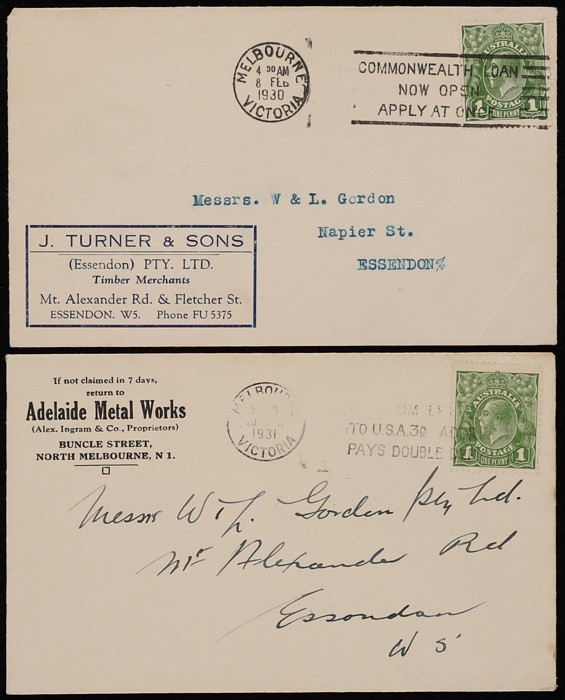 MELBOURNE
4 30 AM
8 FEB
1930
VICTORIA
COMMONWEALTH LOAN
NOW OPEN
APPLY AT ONCE
AUSTRALIA
1 POSTAGE 1
ONE PENNY
Messrs. W & L. Gordon
Napier St.
ESSENDON%
J. TURNER & SONS
(Essendon) PTY. LTD.
Timber Merchants
Mt. Alexander Rd. & Fletcher St.
ESSENDON. W5. Phone FU 5375
If not claimed in 7 days,
return to
Adelaide Metal Works
(Alex. Ingram & Co., Proprietors)
BUNCLE STREET,
NORTH MELBOURNE, N 1.
MELBOU
1931
VICTORIA
UM LE
TO U.S.A. 3D
PAYS DOUBLE
AUSTRALIA
1 POSTAGE 1
ONE PENNY
Messrs W & L. Gordon Pty Ltd.
Mt Alexander Rd
Essondon
W 5